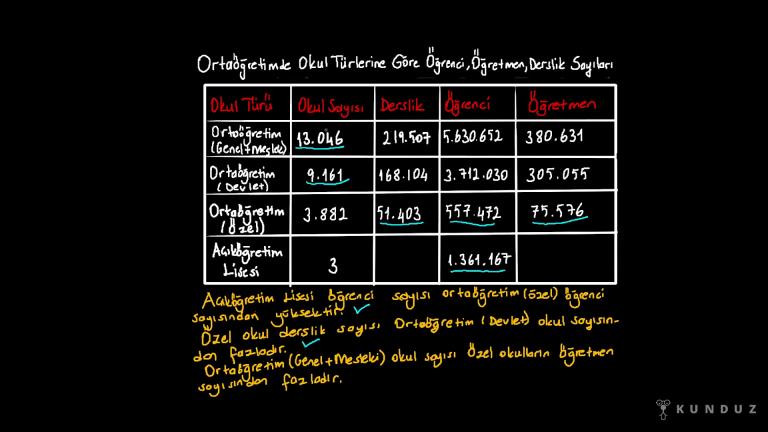 Ortaöğretimde Okul Türlerine Göre Öğrenci, Öğretmen, Derslik Sayıları
Okul Türü Okul Sayısı Derslik Öğrenci Öğretmen
Ortaöğretim (Genel+Meslek) 13.046 219.507 5.630.652 380.631
Ortaöğretim (Devlet) 9.161 168.104 3.712.030 305.055
Ortaöğretim (Özel) 3.882 51.403 557.472 75.576
Açıköğretim Lisesi 3 1.361.167
Açıköğretim Lisesi öğrenci sayısı ortaöğretim (özel) öğrenci
sayısından yüksektir.
Özel okul derslik sayısı Ortaöğretim (Devlet) okul sayısın-
dan fazladır.
Ortaöğretim (Genel+Mesleki) okul sayısı Özel okulların öğretmen
sayısından fazladır.
KUNDUZ